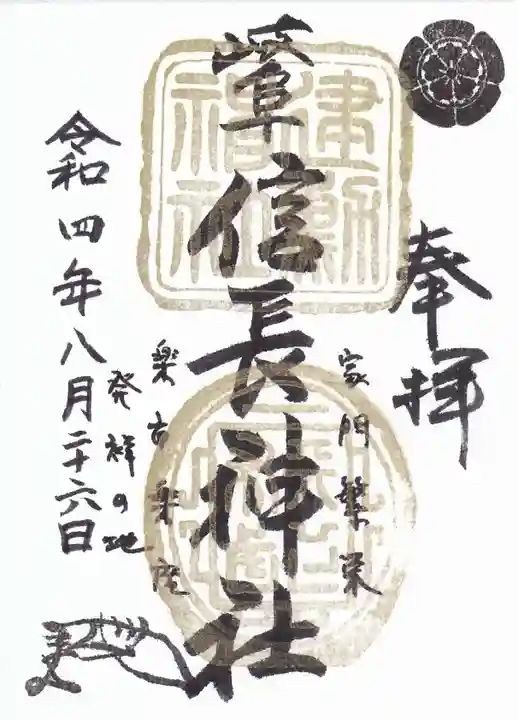 奉拝
家門繁栄
岐阜信長神社
建勲
神社
楽市楽座
発祥の地
令和四年八月二十六日